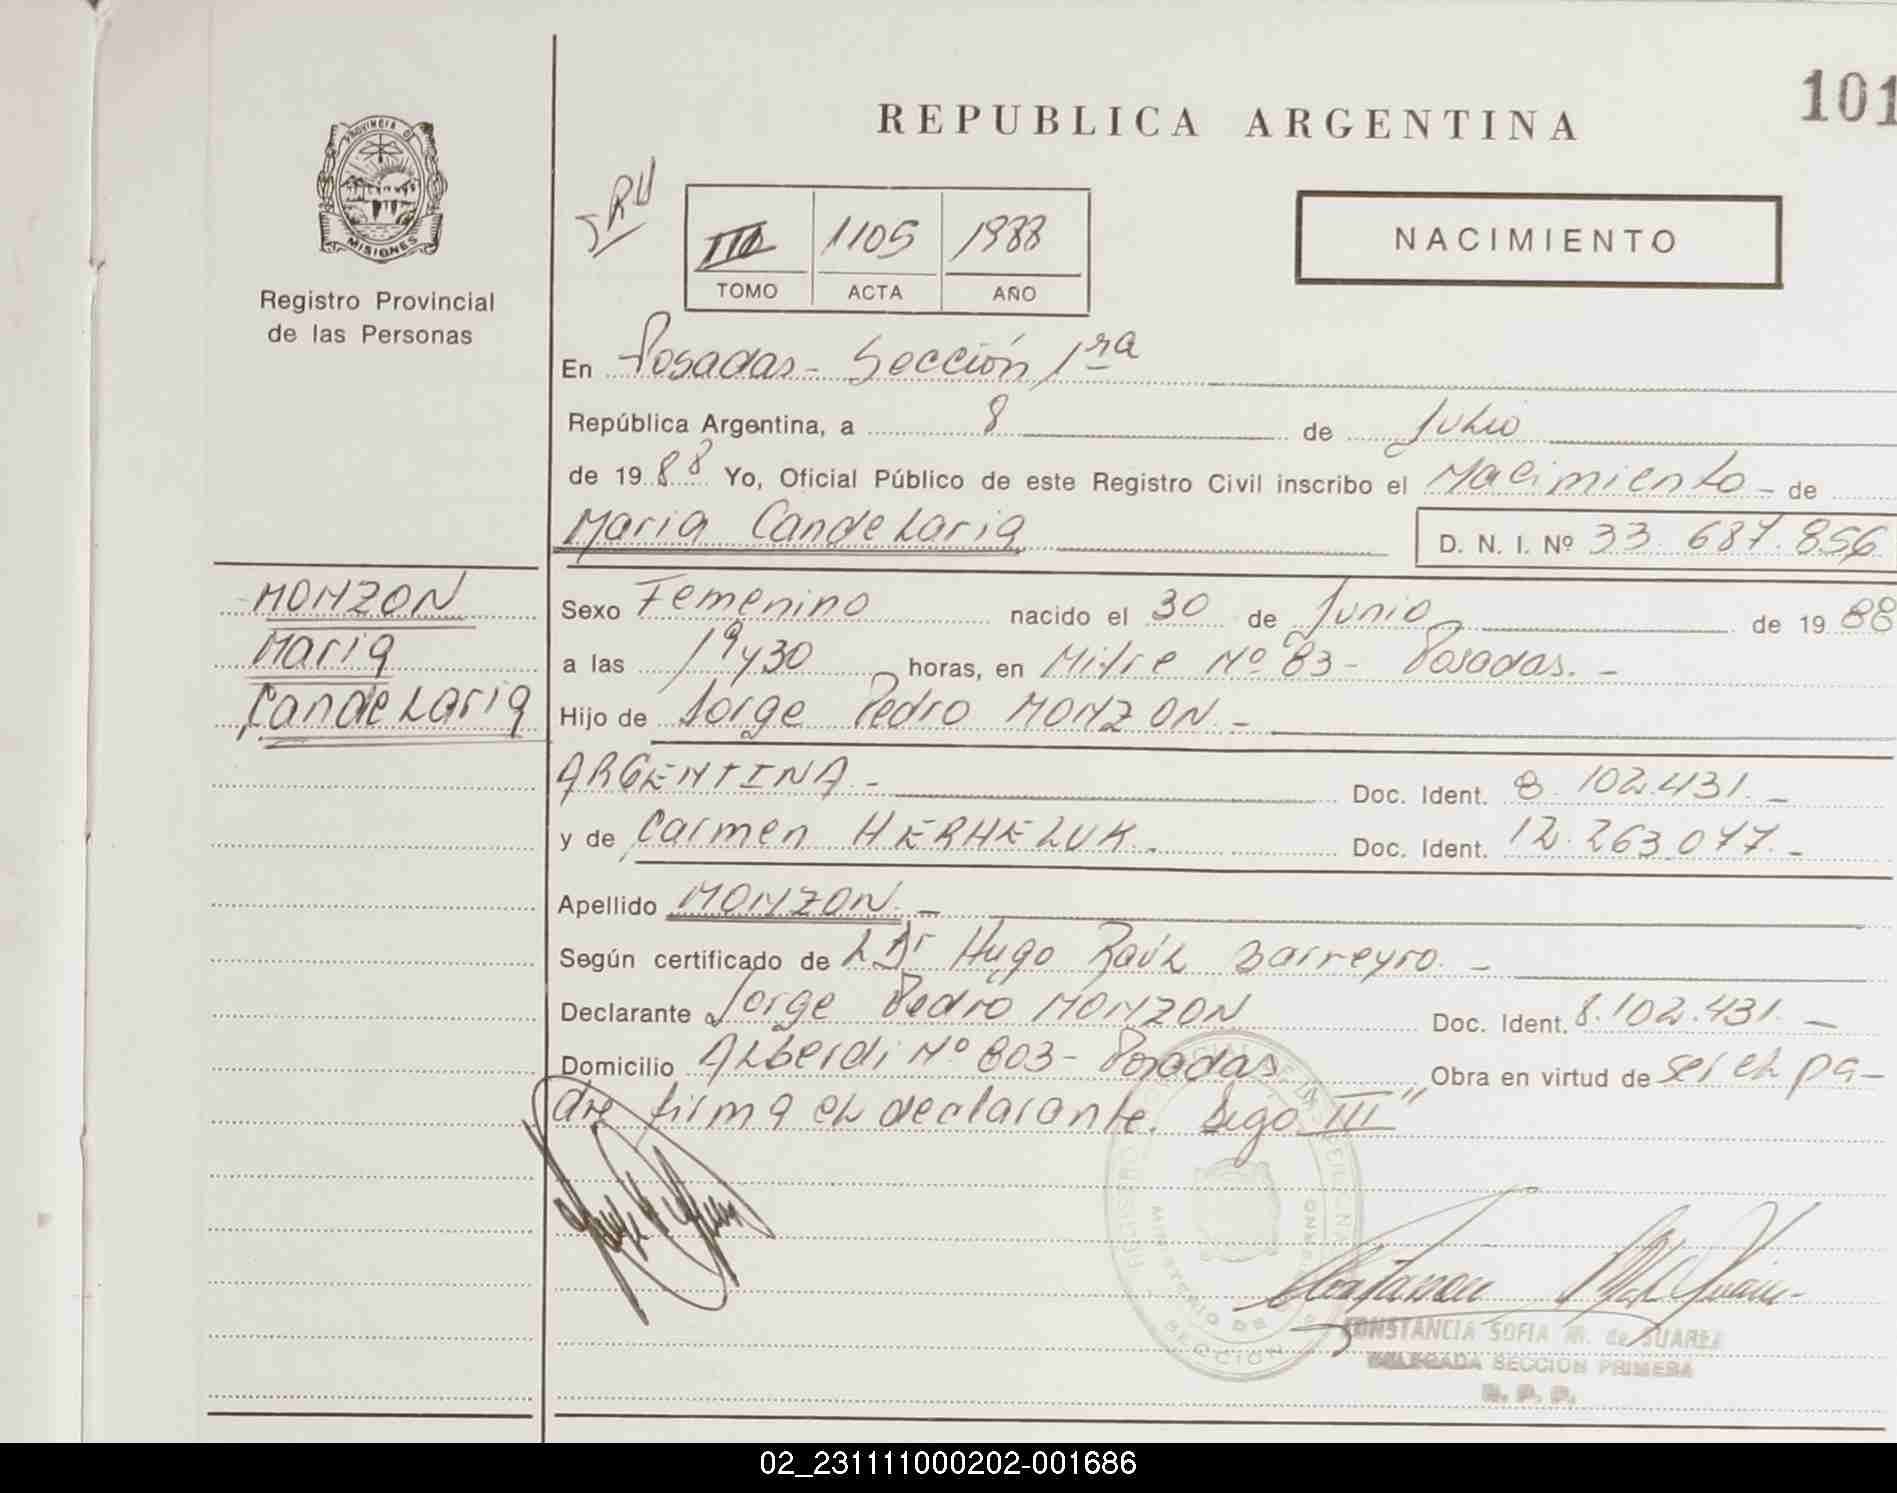 101
REPUBLICA ARGENTINA
PROVINCIA DE
MISIONES
Registro Provincial
de las Personas
III 1105 1988
TOMO ACTA AÑO
NACIMIENTO
En Posadas - Sección 1ra
República Argentina, a 8 de Julio
de 1988 Yo, Oficial Público de este Registro Civil inscribo el Nacimiento - de
Maria Candelaria D. N. I. Nº 33.687.856
MONZON
Maria
Candelaria
Sexo Femenino nacido el 30 de Junio de 1988
a las 19y30 horas, en Mitre Nº 83 - Posadas. -
Hijo de Jorge Pedro MONZON. -
ARGENTINA. - Doc. Ident. 8.102.431. -
y de Carmen HERHELUK. Doc. Ident. 12.263.077. -
Apellido MONZON. -
Según certificado de L Dr Hugo Raúl Barreyro. -
Declarante Jorge Pedro MONZON Doc. Ident. 8.102.431. -
Domicilio Alberdi Nº 803 - Posadas Obra en virtud de ser el pa-
dre firma el declarante. Sigo III"
MINISTERIO DE
SECCION
CONSTANCIA SOFIA M. de SUAREZ
DELEGADA SECCION PRIMERA
R. P. P.
02_231111000202-001686